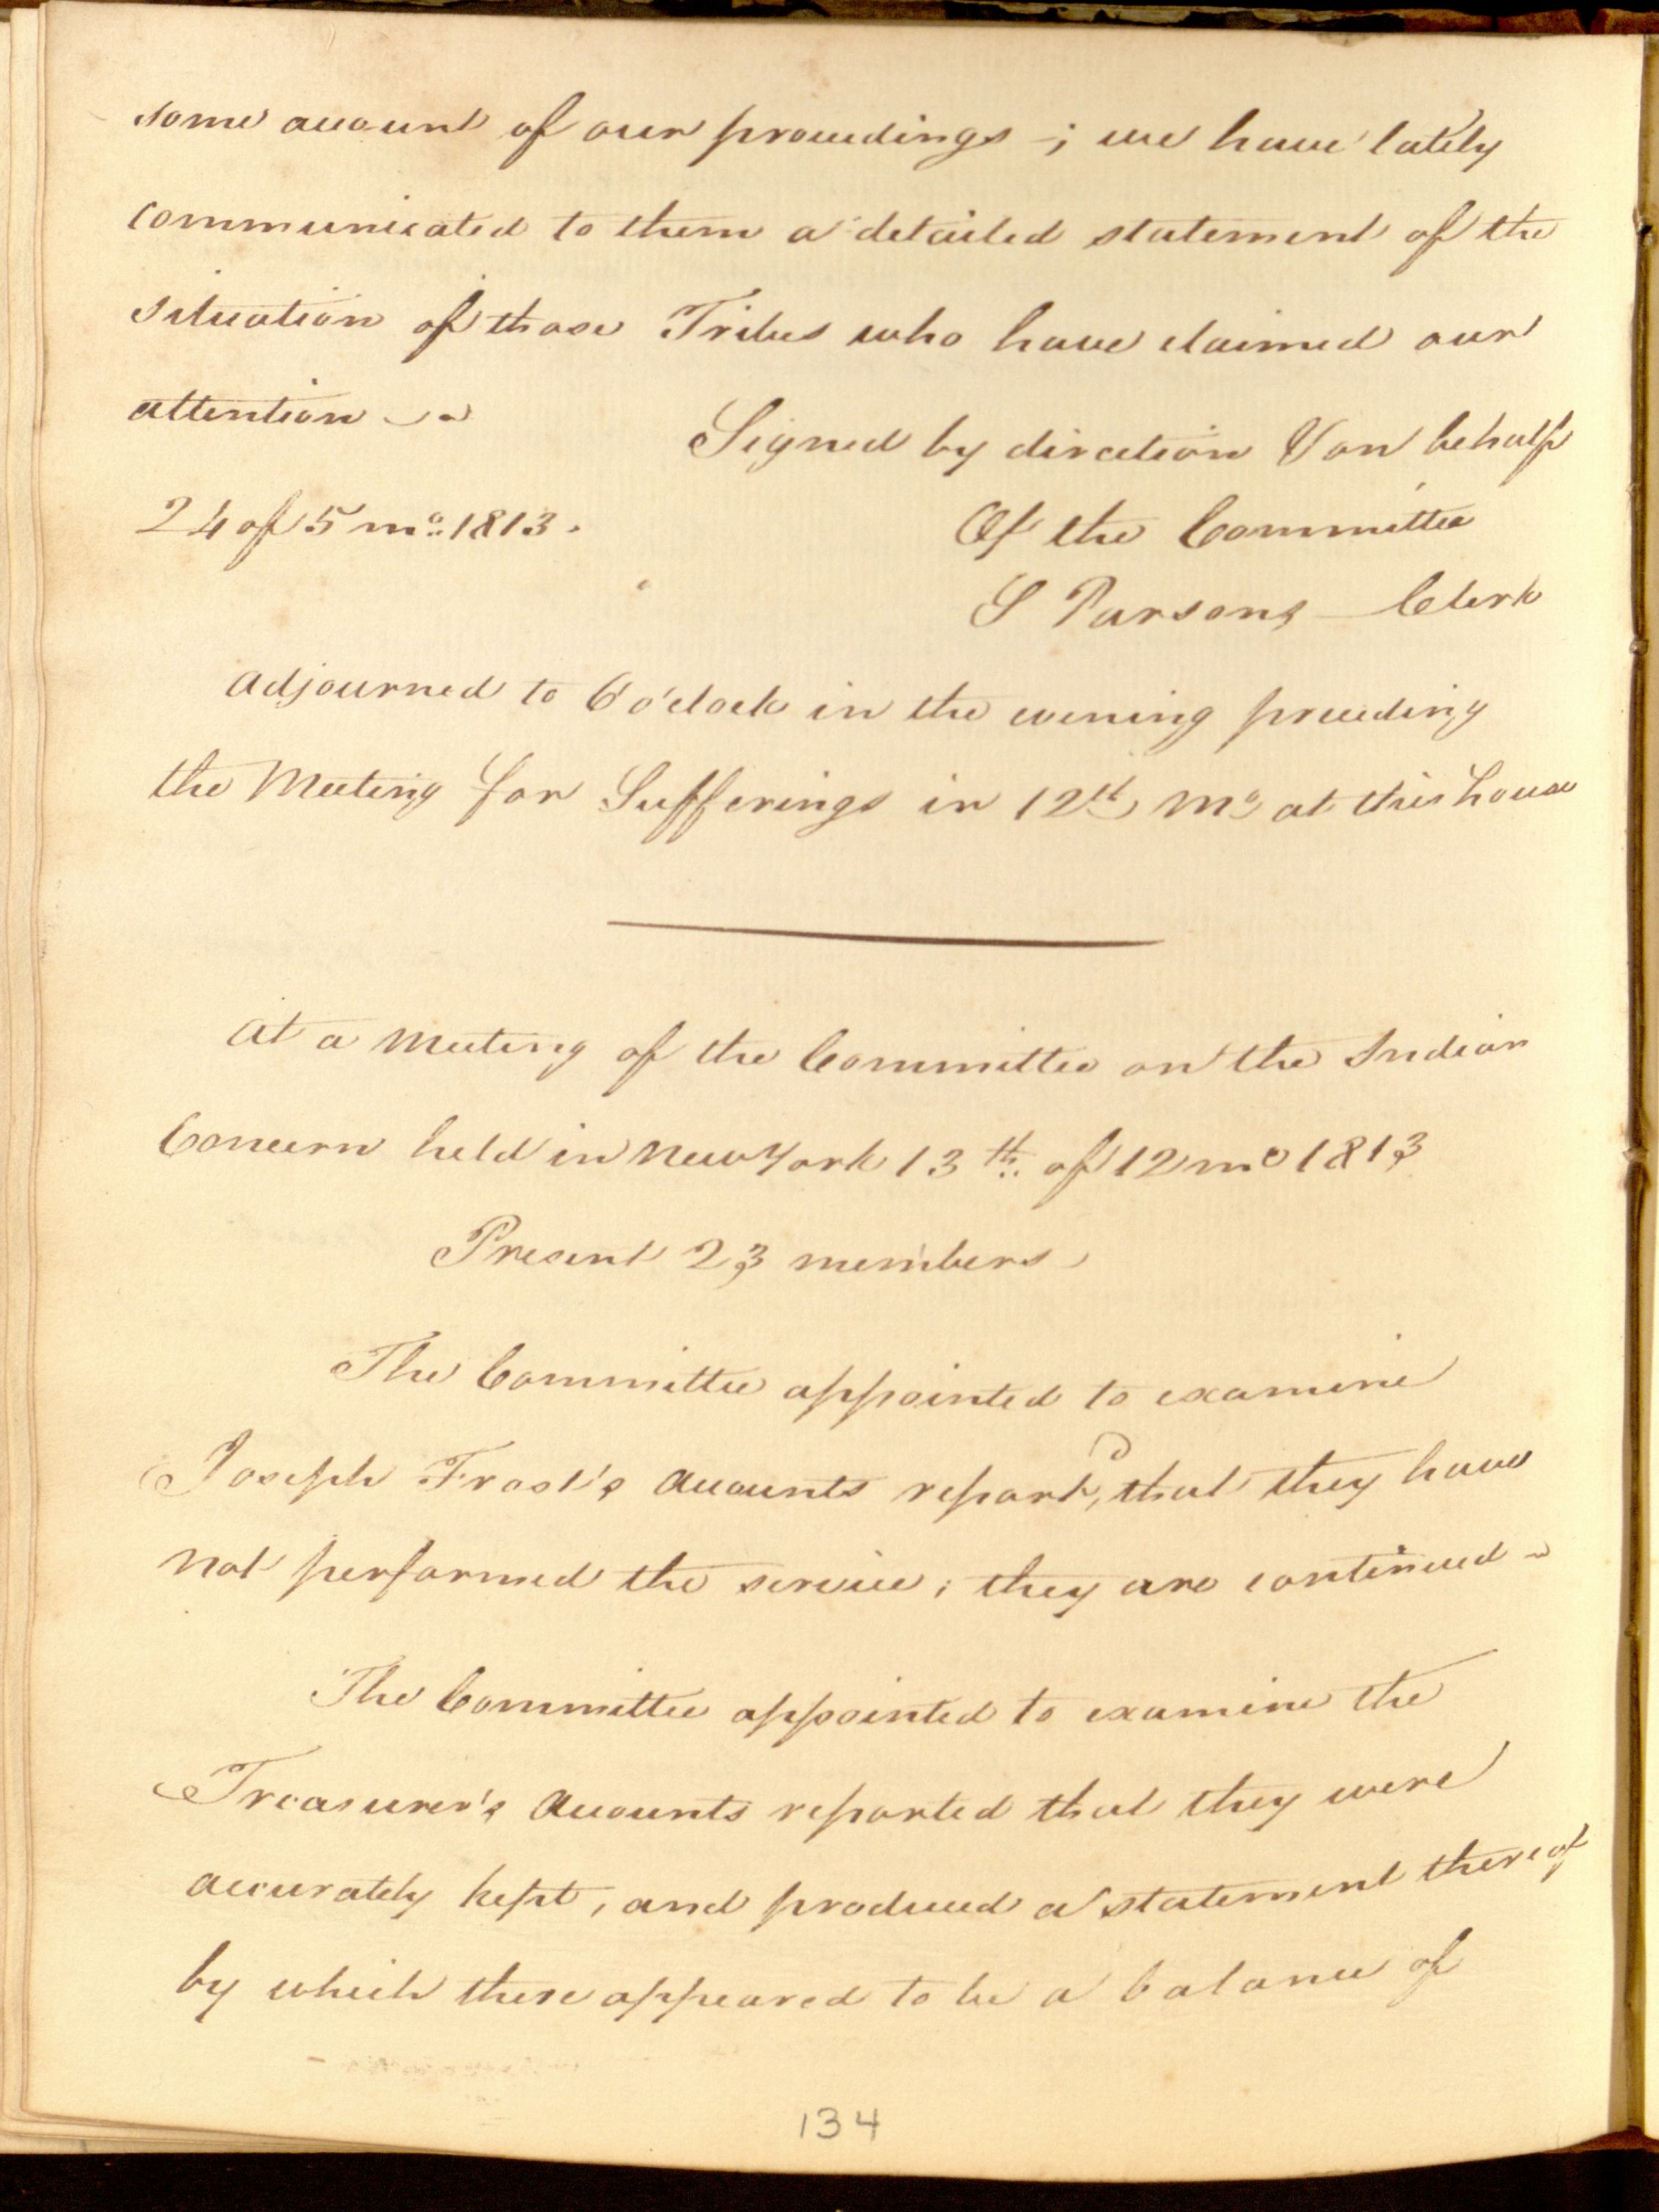 some account of our proceedings -; we have lately
communicated to them a detailed statement of the
situation of those Tribes who have claimed our
attention
Signed by direction & on behalf
24 of 5 mo. 1813.
Of the Committee
S Parsons Clerk
adjourned to 6 o'clock in the evening preceeding
the Meeting for Sufferings in 12th Mo at this house
At a Meeting of the Committee on the Indian
Concern held in New York 13th. of 12 mo 1813
Present 23 members
The Committee appointed to examine
Joseph Frost's Accounts report, that they have
not performed the service; they are continued -
The Committee appointed to examine the
Treasurer's Accounts reported that they were
accurately kept, and produced a statement thereof
by which there appeared to be a balance of
134